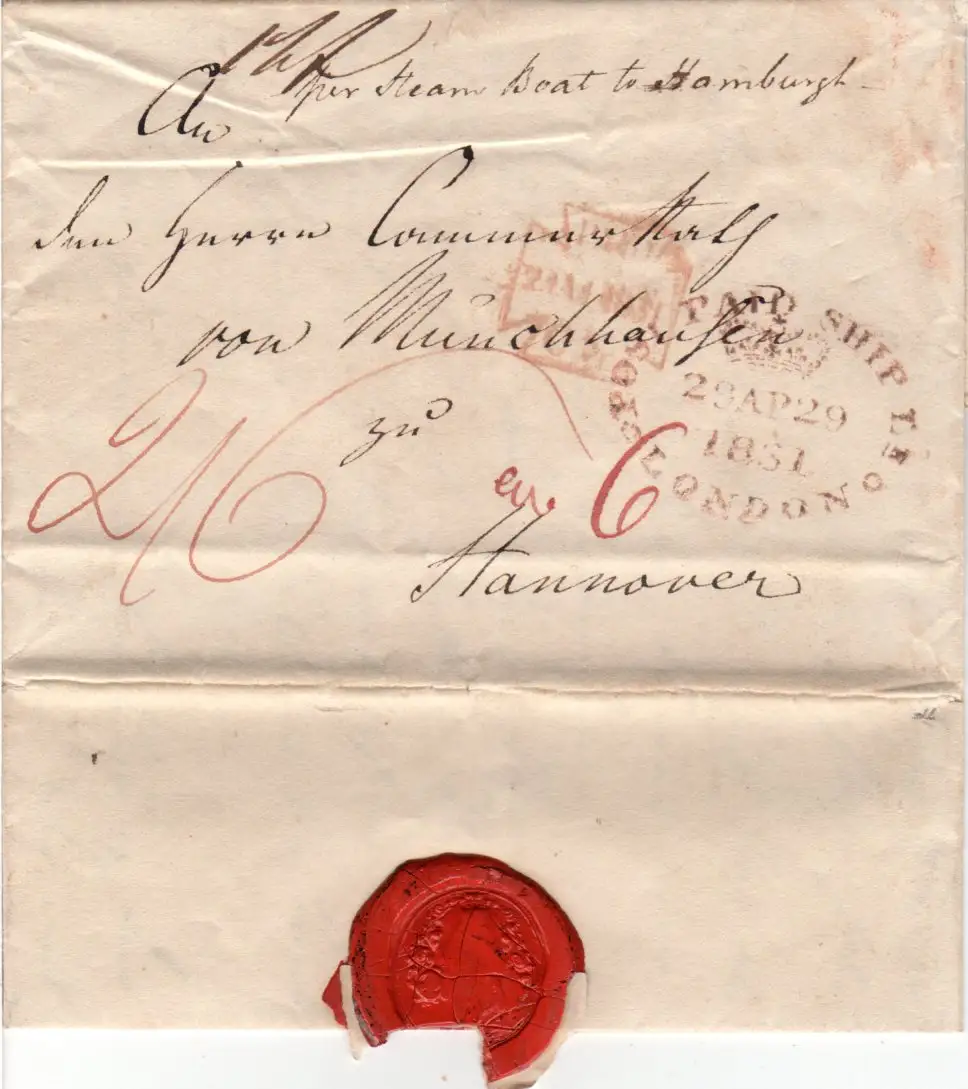 per Steam Boat to Hamburgh
An
den Herrn Cammer Rath
von Münchhausen
zu
Hannover
2/6
6
POST PAID SHIP LR
29AP29
1831
LONDON